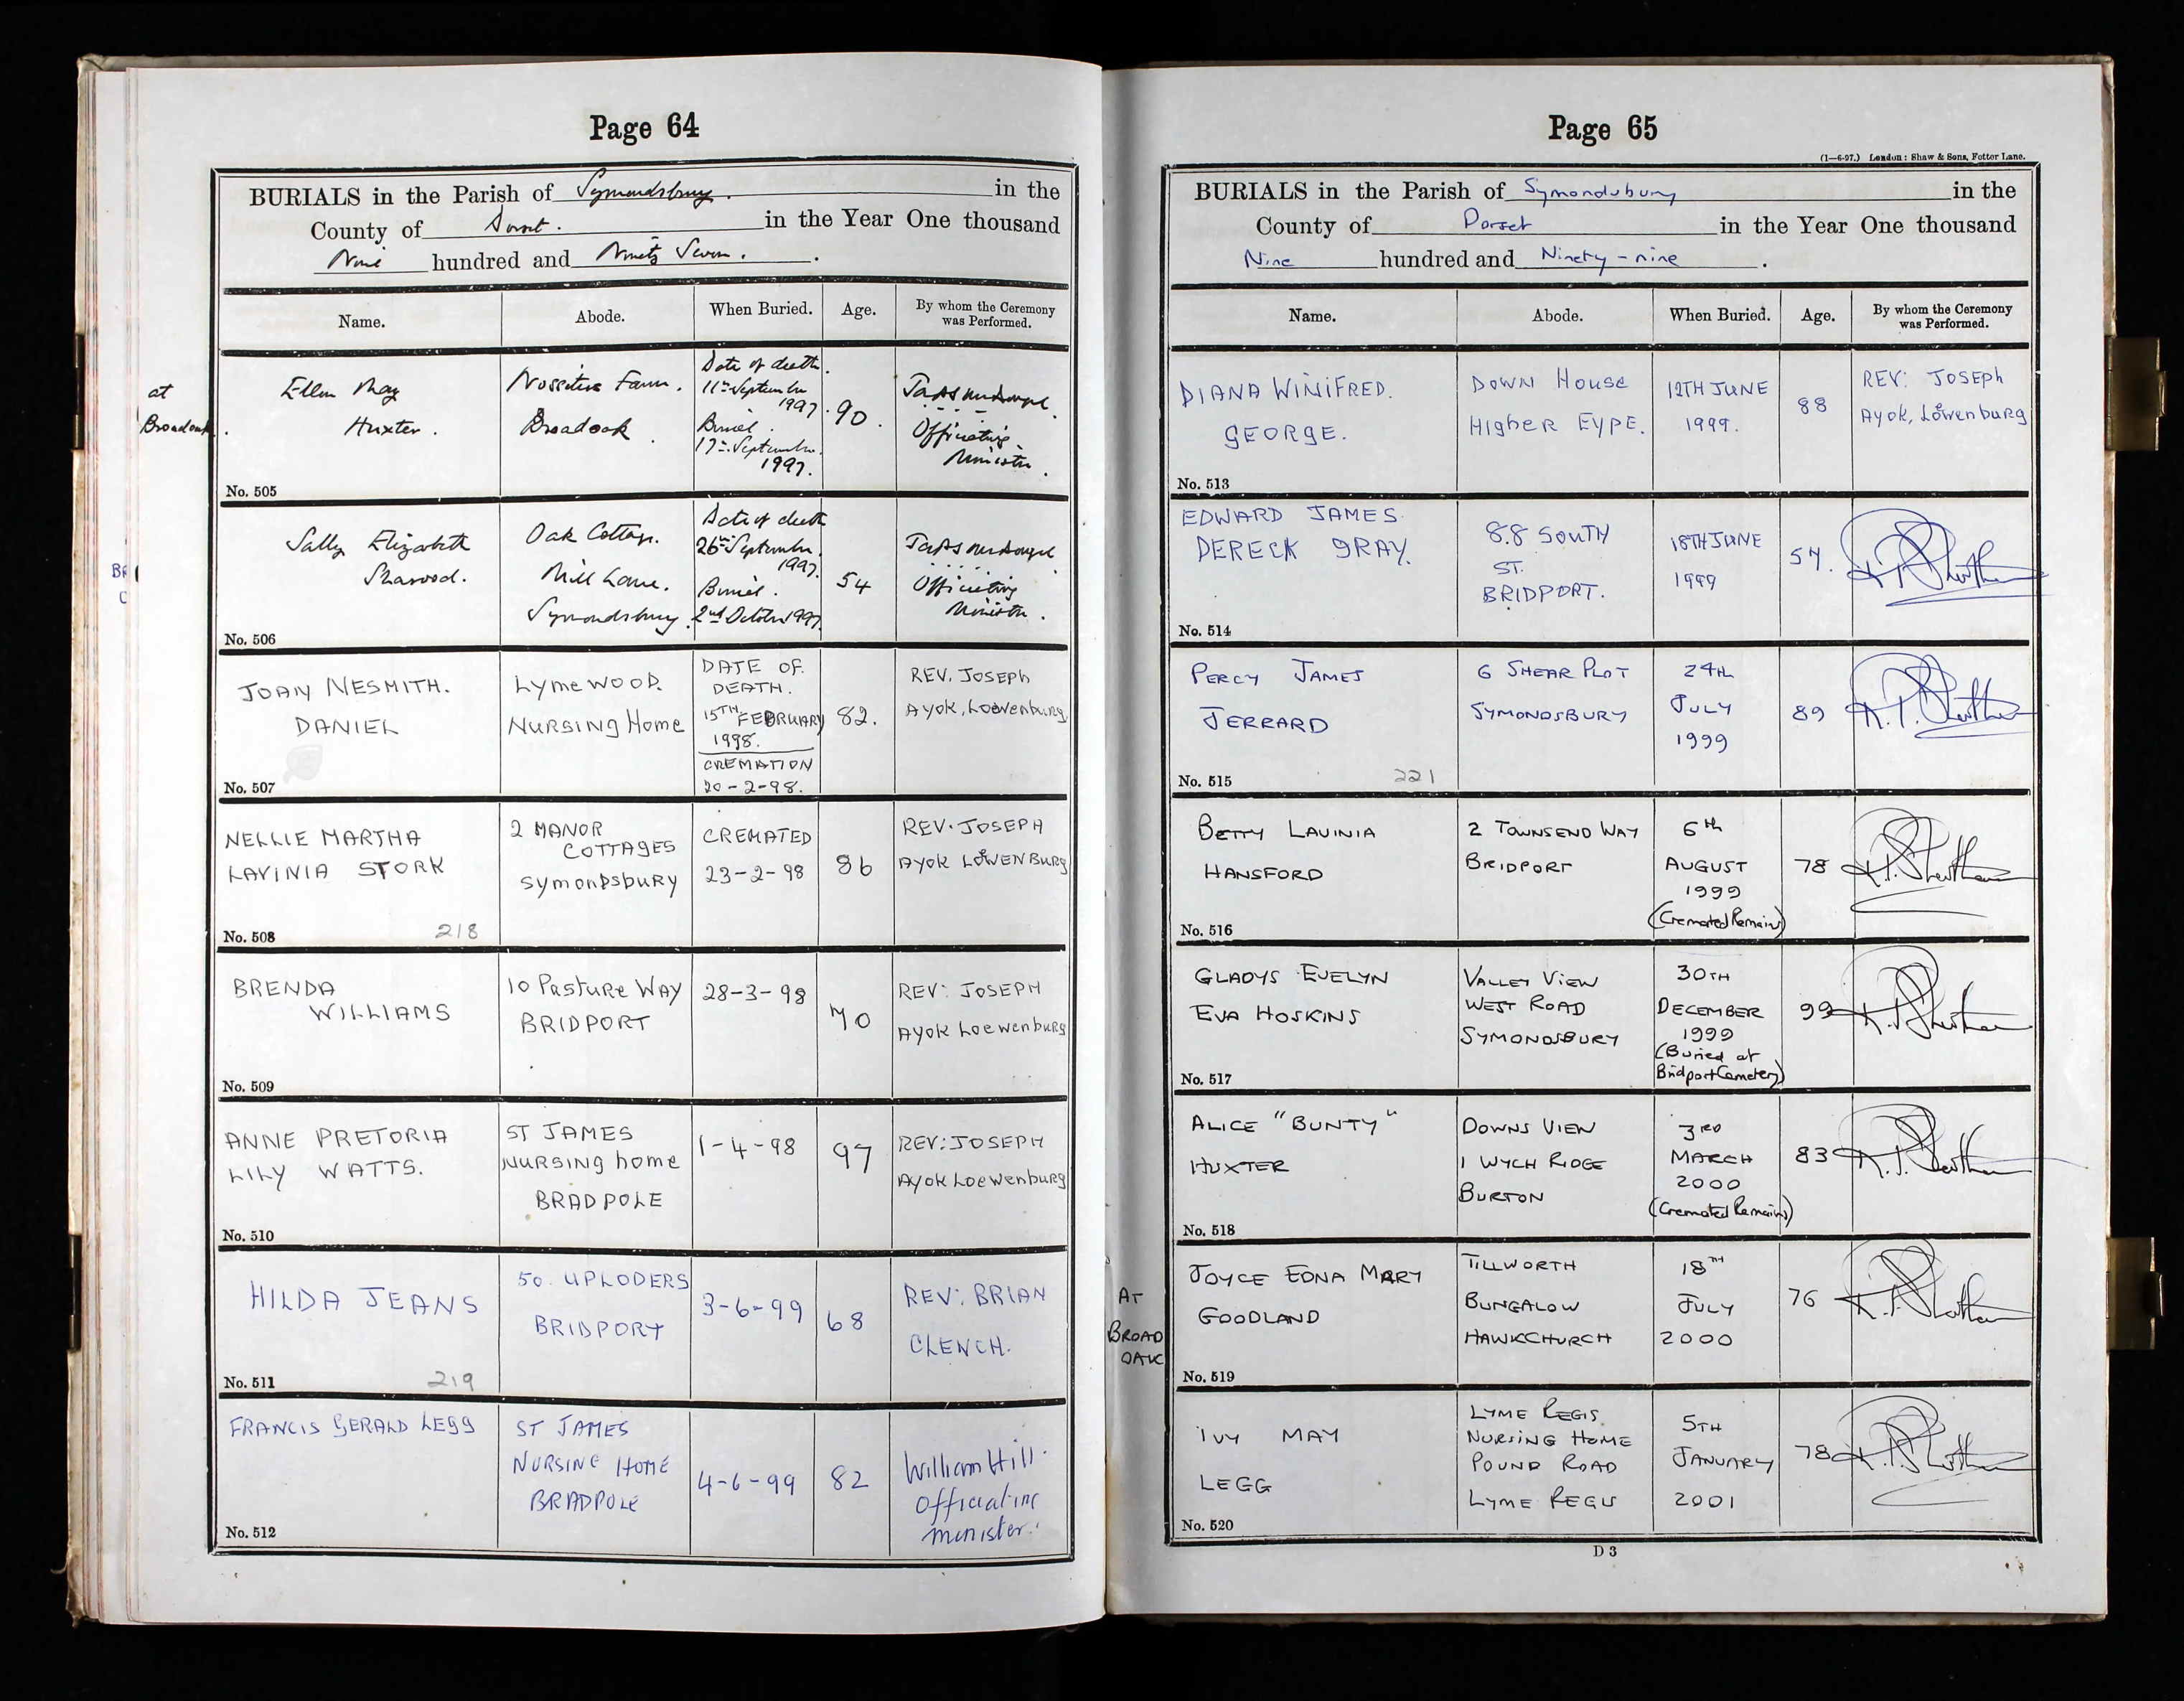 Page 64
BURIALS in the Parish of Symondsbury. in the
County of Dorset. in the Year One thousand
Nine hundred and Ninety Seven.
Name. Abode. When Buried. Age. By whom the Ceremony was Performed.
at
Broadoak.
Ellen May
Huxter.
Broadoak.
Date of death.
11th September
1997.
Burial.
17th September
1997.
90.
Officiating
Minister.
No. 505
Sally Elizabeth
Oak Cottage.
Mill Lane.
Symondsbury.
Date of death
26th September
1997.
Burial.
2nd October 1997.
54
Officiating
Minister.
No. 506
JOAN NESMITH.
DANIEL
Lymewood.
NURSING Home
DATE OF
DEATH.
15TH FEBRUARY
1998.
CREMATION
20-2-98.
82.
REV. JOSEPH
Ayok, Loewenburg
No. 507
NELLIE MARTHA
LAVINIA STORK
2 MANOR
COTTAGES
SYMONDSBURY
CREMATED
23-2-98
86
REV. JOSEPH
AYOK LÖWENBURG
No. 508
218
BRENDA
WILLIAMS
10 Pasture WAY
BRIDPORT
28-3-98
70
REV: JOSEPH
AYOK Loewenburg
No. 509
ANNE PRETORIA
LILY WATTS.
ST JAMES
NURSING home
BRADPOLE
1-4-98
97
REV: JOSEPH
AYOK Loewenburg
No. 510
HILDA JEANS
50. UPLODERS
BRIDPORT
3-6-99
68
REV: BRIAN
CLENCH.
No. 511
219
FRANCIS GERALD LEGG
ST JAMES
NURSING HOME
BRADPOLE
4-6-99
82
William Hill
Officiating
minister.
No. 512
Page 65
(1—6-97.) London: Shaw & Sons, Fetter Lane.
BURIALS in the Parish of Symondsbury in the
County of Dorset in the Year One thousand
Nine hundred and Ninety-nine.
Name. Abode. When Buried. Age. By whom the Ceremony was Performed.
DIANA WINIFRED.
GEORGE.
DOWN HOUSE
HIGHER EYPE.
12TH JUNE
1999.
88
REV: JOSEPH
Ayok, Löwenburg
No. 513
EDWARD JAMES
DERECK GRAY.
8.8 SOUTH
ST.
BRIDPORT.
18TH JUNE
1999
57.
No. 514
PERCY JAMES
JERRARD
6 SHEAR PLOT
SYMONDSBURY
24th
JULY
1999
89
No. 515
221
BETTY LAVINIA
HANSFORD
2 TOWNSEND WAY
BRIDPORT
6th
AUGUST
1999
(Cremated Remains)
78
No. 516
GLADYS EVELYN
EVA HOSKINS
VALLEY VIEW
WEST ROAD
SYMONDSBURY
30TH
DECEMBER
1999
(Buried at
Bridport Cemetery)
99
No. 517
ALICE "BUNTY"
HUXTER
DOWNS VIEW
1 WYCH RIDGE
BURTON
3RD
MARCH
2000
(Cremated Remains)
83
No. 518
AT
BROAD
OAK
JOYCE EDNA MARY
GOODLAND
TILLWORTH
BUNGALOW
HAWKCHURCH
18TH
JULY
2000
76
No. 519
IVY MAY
LEGG
LYME REGIS
NURSING HOME
POUND ROAD
LYME REGIS
5TH
JANUARY
2001
78
No. 520
D 3